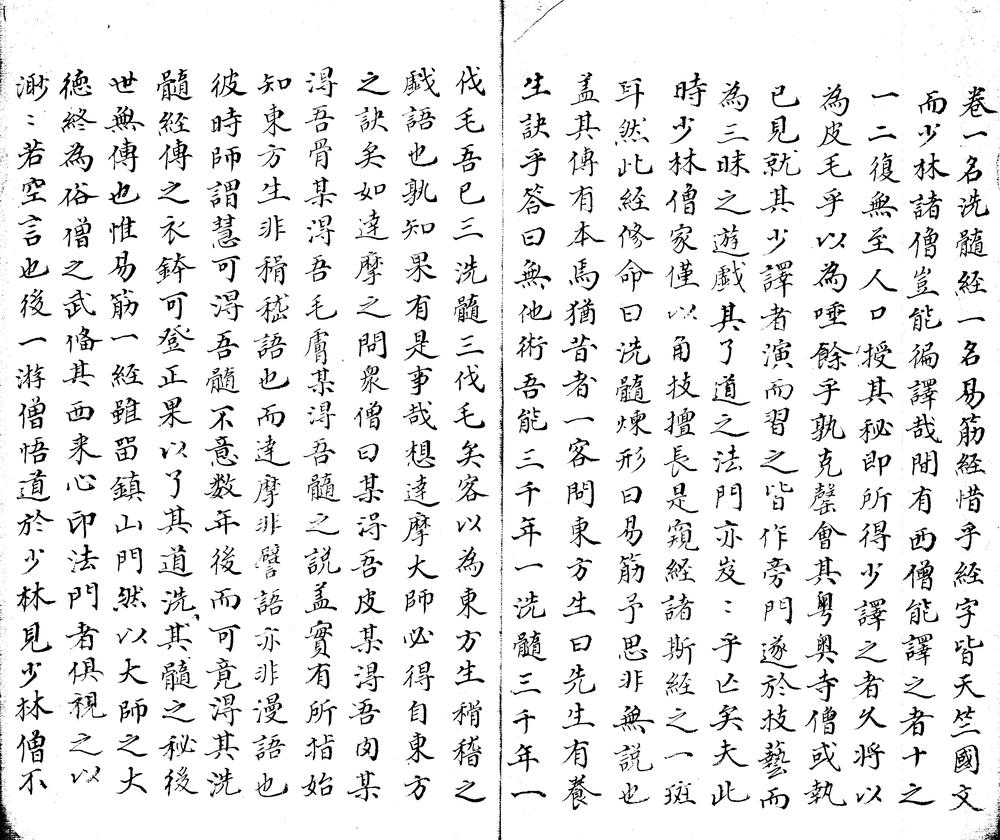 卷一名洗髓經一名易筋經惜乎經字皆天竺國文
而少林諸僧豈能徧譯哉間有西僧能譯之者十之
一二復無至人口授其秘即所得少譯之者久將以
為皮毛乎以為唾餘乎孰克罄會其粤奥寺僧或執
已見就其少譯者演而習之皆作旁門遂於技藝而
為三昧之遊戲其了道之法門亦岌〻乎亾矣夫此
時少林僧家僅以角技擅長是窺經諸斯經之一斑
耳然此經修命曰洗髓煉形曰易筋予思非無説也
盖其傳有本焉猶昔者一客問東方生曰先生有養
生訣乎答曰無他術吾能三千年一洗髓三千年一
伐毛吾已三洗髓三伐毛矣客以為東方生稽稽之
戲語也孰知果有是事哉想達摩大師必得自東方
之訣矣如達摩之問衆僧曰某淂吾皮某淂吾肉某
淂吾骨某淂吾毛膚某淂吾髓之説盖實有所指始
知東方生非稽嵇語也而達摩非譬語亦非漫語也
彼時師謂慧可淂吾髓不意数年後而可竟淂其洗
髓經傳之衣鉢可登正果以了其道洗其髓之秘後
世無傳也惟易筋一經雖畱鎮山門然以大師之大
德終為俗僧之武俻其西来心印法門者俱視之以
渺〻若空言也後一游僧悟道於少林見少林僧不